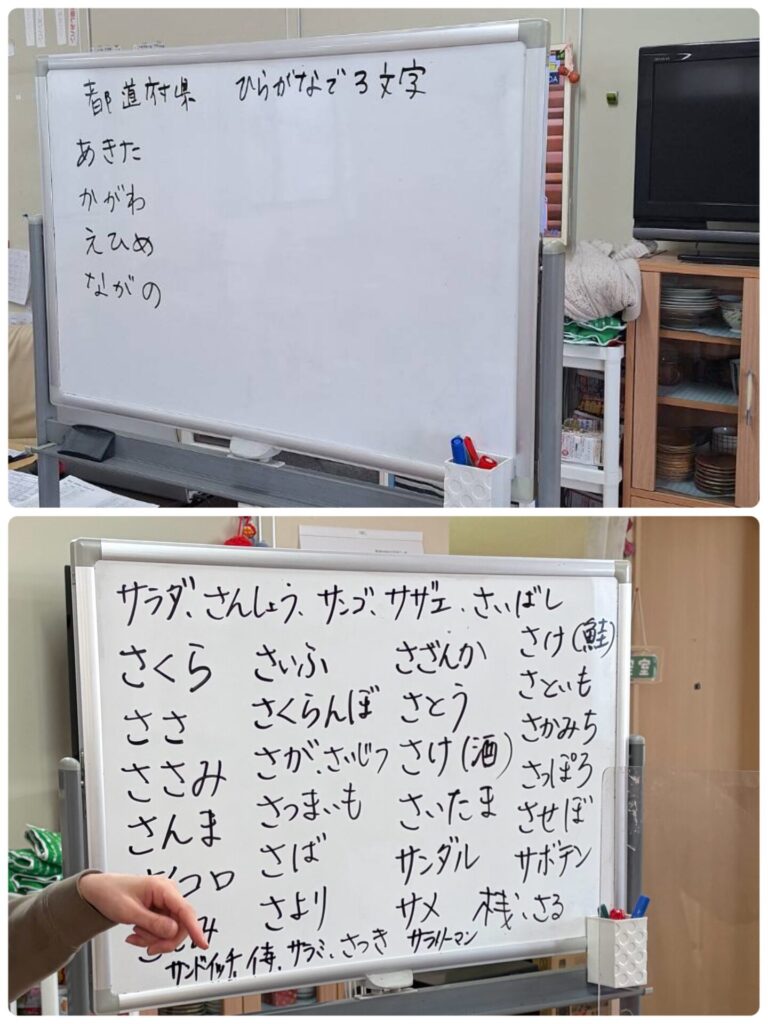 都道府県 ひらがなで3文字
あきた
かがわ
えひめ
ながの
サラダ、さんしょう、サンゴ、サザエ、さいばし
さくら
ささ
ささみ
さんま
さいふ
さくらんぼ
さが、さいじつ
さつまいも
さば
さより
さざんか
さとう
さけ(酒)
さいたま
サンダル
サメ
さけ(鮭)
さといも
さかみち
さっぽろ
させぼ
サボテン
桟、さる
サンドイッチ、侍、サラミ、さつき サラリーマン